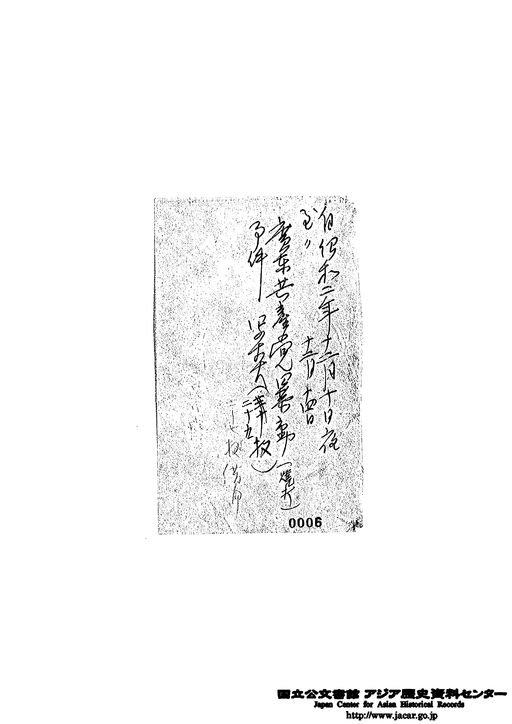 自昭和二年十二月十日夜
至〃 十二月十四日
廣東共産党暴動(焼打)
事件 写真(
二十九枚)
0006
国立公文書館 アジア歴史資料センター
Japan Center for Asian Historical Records
http://www.jacar.go.jp